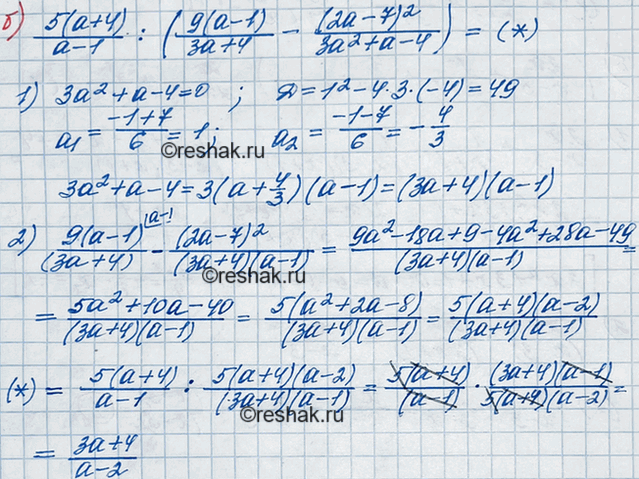 б) 5(a+4)/(a-1) : (9(a-1)/(3a+4) - (2a-7)²/(3a²+a-4)) = (*)
1) 3a²+a-4=0 ; D=1²-4·3·(-4)=49
a₁ = (-1+7)/6 = 1; a₂ = (-1-7)/6 = -4/3
©reshak.ru
3a²+a-4=3(a+4/3)(a-1)=(3a+4)(a-1)
2) 9(a-1)^(a-1)/(3a+4) - (2a-7)²/((3a+4)(a-1)) = (9a²-18a+9-4a²+28a-49)/((3a+4)(a-1)) =
©reshak.ru
= (5a²+10a-40)/((3a+4)(a-1)) = 5(a²+2a-8)/((3a+4)(a-1)) = 5(a+4)(a-2)/((3a+4)(a-1))
(*) = 5(a+4)/(a-1) : 5(a+4)(a-2)/((3a+4)(a-1)) = 5(a+4)/(a-1) · (3a+4)(a-1)/(5(a+4)(a-2)) =
©reshak.ru
= (3a+4)/(a-2)